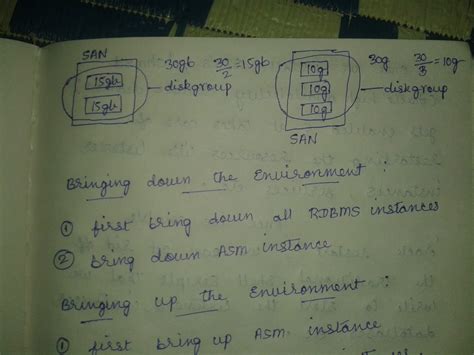 SAN
30gb 30/2 = 15gb
15gb
15gb
diskgroup
30g 30/3 = 10g
10g
10g
10g
diskgroup
SAN
Bringing down the Environment :
① first bring down all RDBMS instances
② bring down ASM instance
Bringing up the Environment :
① first bring up ASM instance